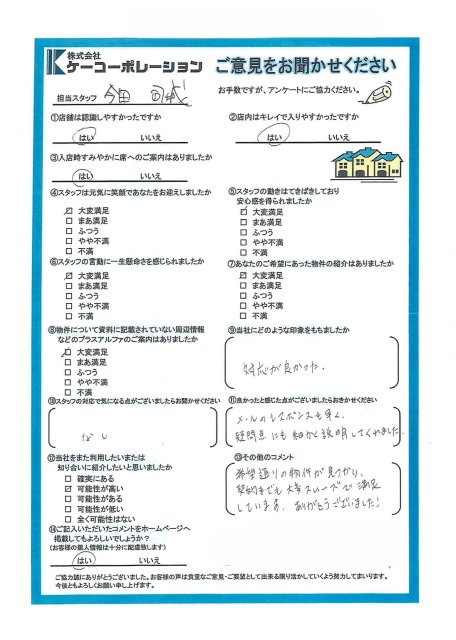 株式会社
ケーコーポレーション
ご意見をお聞かせください
担当スタッフ 今田
お手数ですが、アンケートにご協力ください。
①店舗は認識しやすかったですか
はい いいえ
②店内はキレイで入りやすかったですか
はい いいえ
③入店時すみやかに席へのご案内はありましたか
はい いいえ
④スタッフは元気に笑顔であなたをお迎えしましたか
大変満足
まあ満足
ふつう
やや不満
不満
⑤スタッフの動きはてきぱきしており
安心感を得られましたか
大変満足
まあ満足
ふつう
やや不満
不満
⑥スタッフの言動に一生懸命さを感じられましたか
大変満足
まあ満足
ふつう
やや不満
不満
⑦あなたのご希望にあった物件の紹介はありましたか
大変満足
まあ満足
ふつう
やや不満
不満
⑧物件について資料に記載されていない周辺情報
などのプラスアルファのご案内はありましたか
大変満足
まあ満足
ふつう
やや不満
不満
⑨当社にどのような印象をもちましたか
対応が良かった。
⑩スタッフの対応で気になる点がございましたらお聞かせください
なし
⑪良かったと感じた点がございましたらおきかせください
メールのレスポンスも早く、
疑問点にも細かく説明してくれました。
⑫当社をまた利用したいまたは
知り合いに紹介したいと思いましたか
確実にある
可能性が高い
可能性がある
可能性が低い
全く可能性はない
⑬その他のコメント
希望通りの物件が見つかり、
契約までも大変スムーズで満足
しています。ありがとうございました!
⑭ご記入いただいたコメントをホームページへ
掲載してもよろしいでしょうか?
(お客様の個人情報は十分に配慮致します)
はい いいえ
ご協力誠にありがとうございました。お客様の声は貴重なご意見・ご要望として出来る限り活かしていくよう努力してまいります。
今後ともよろしくお願い申し上げます。